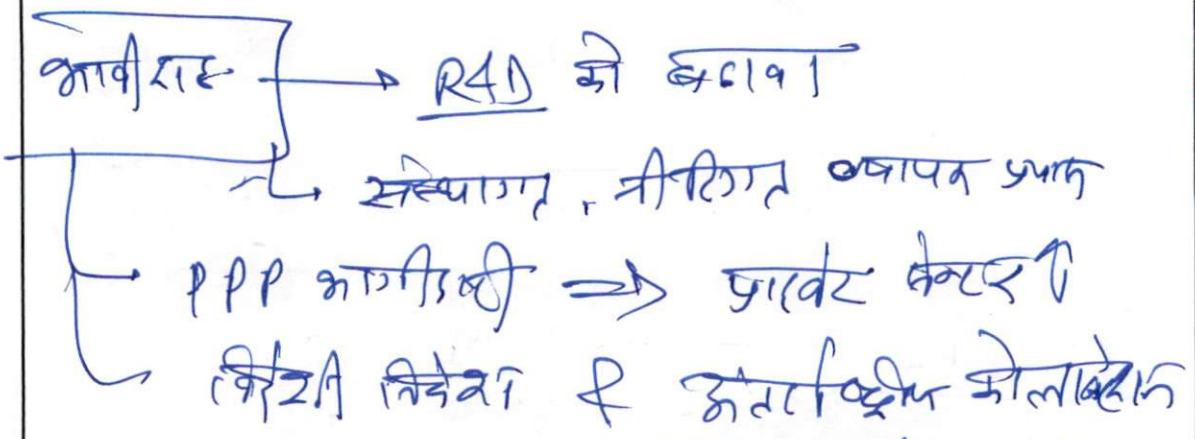 भावी राह → R&D को बढावा
→ संस्थागत, नीतिगत व्यापक प्रयास
→ PPP भागीदारी ⇒ प्राइवेट सेक्टर ↑
→ विदेशी निवेश & अंतर्राष्ट्रीय कोलाबोरेशन